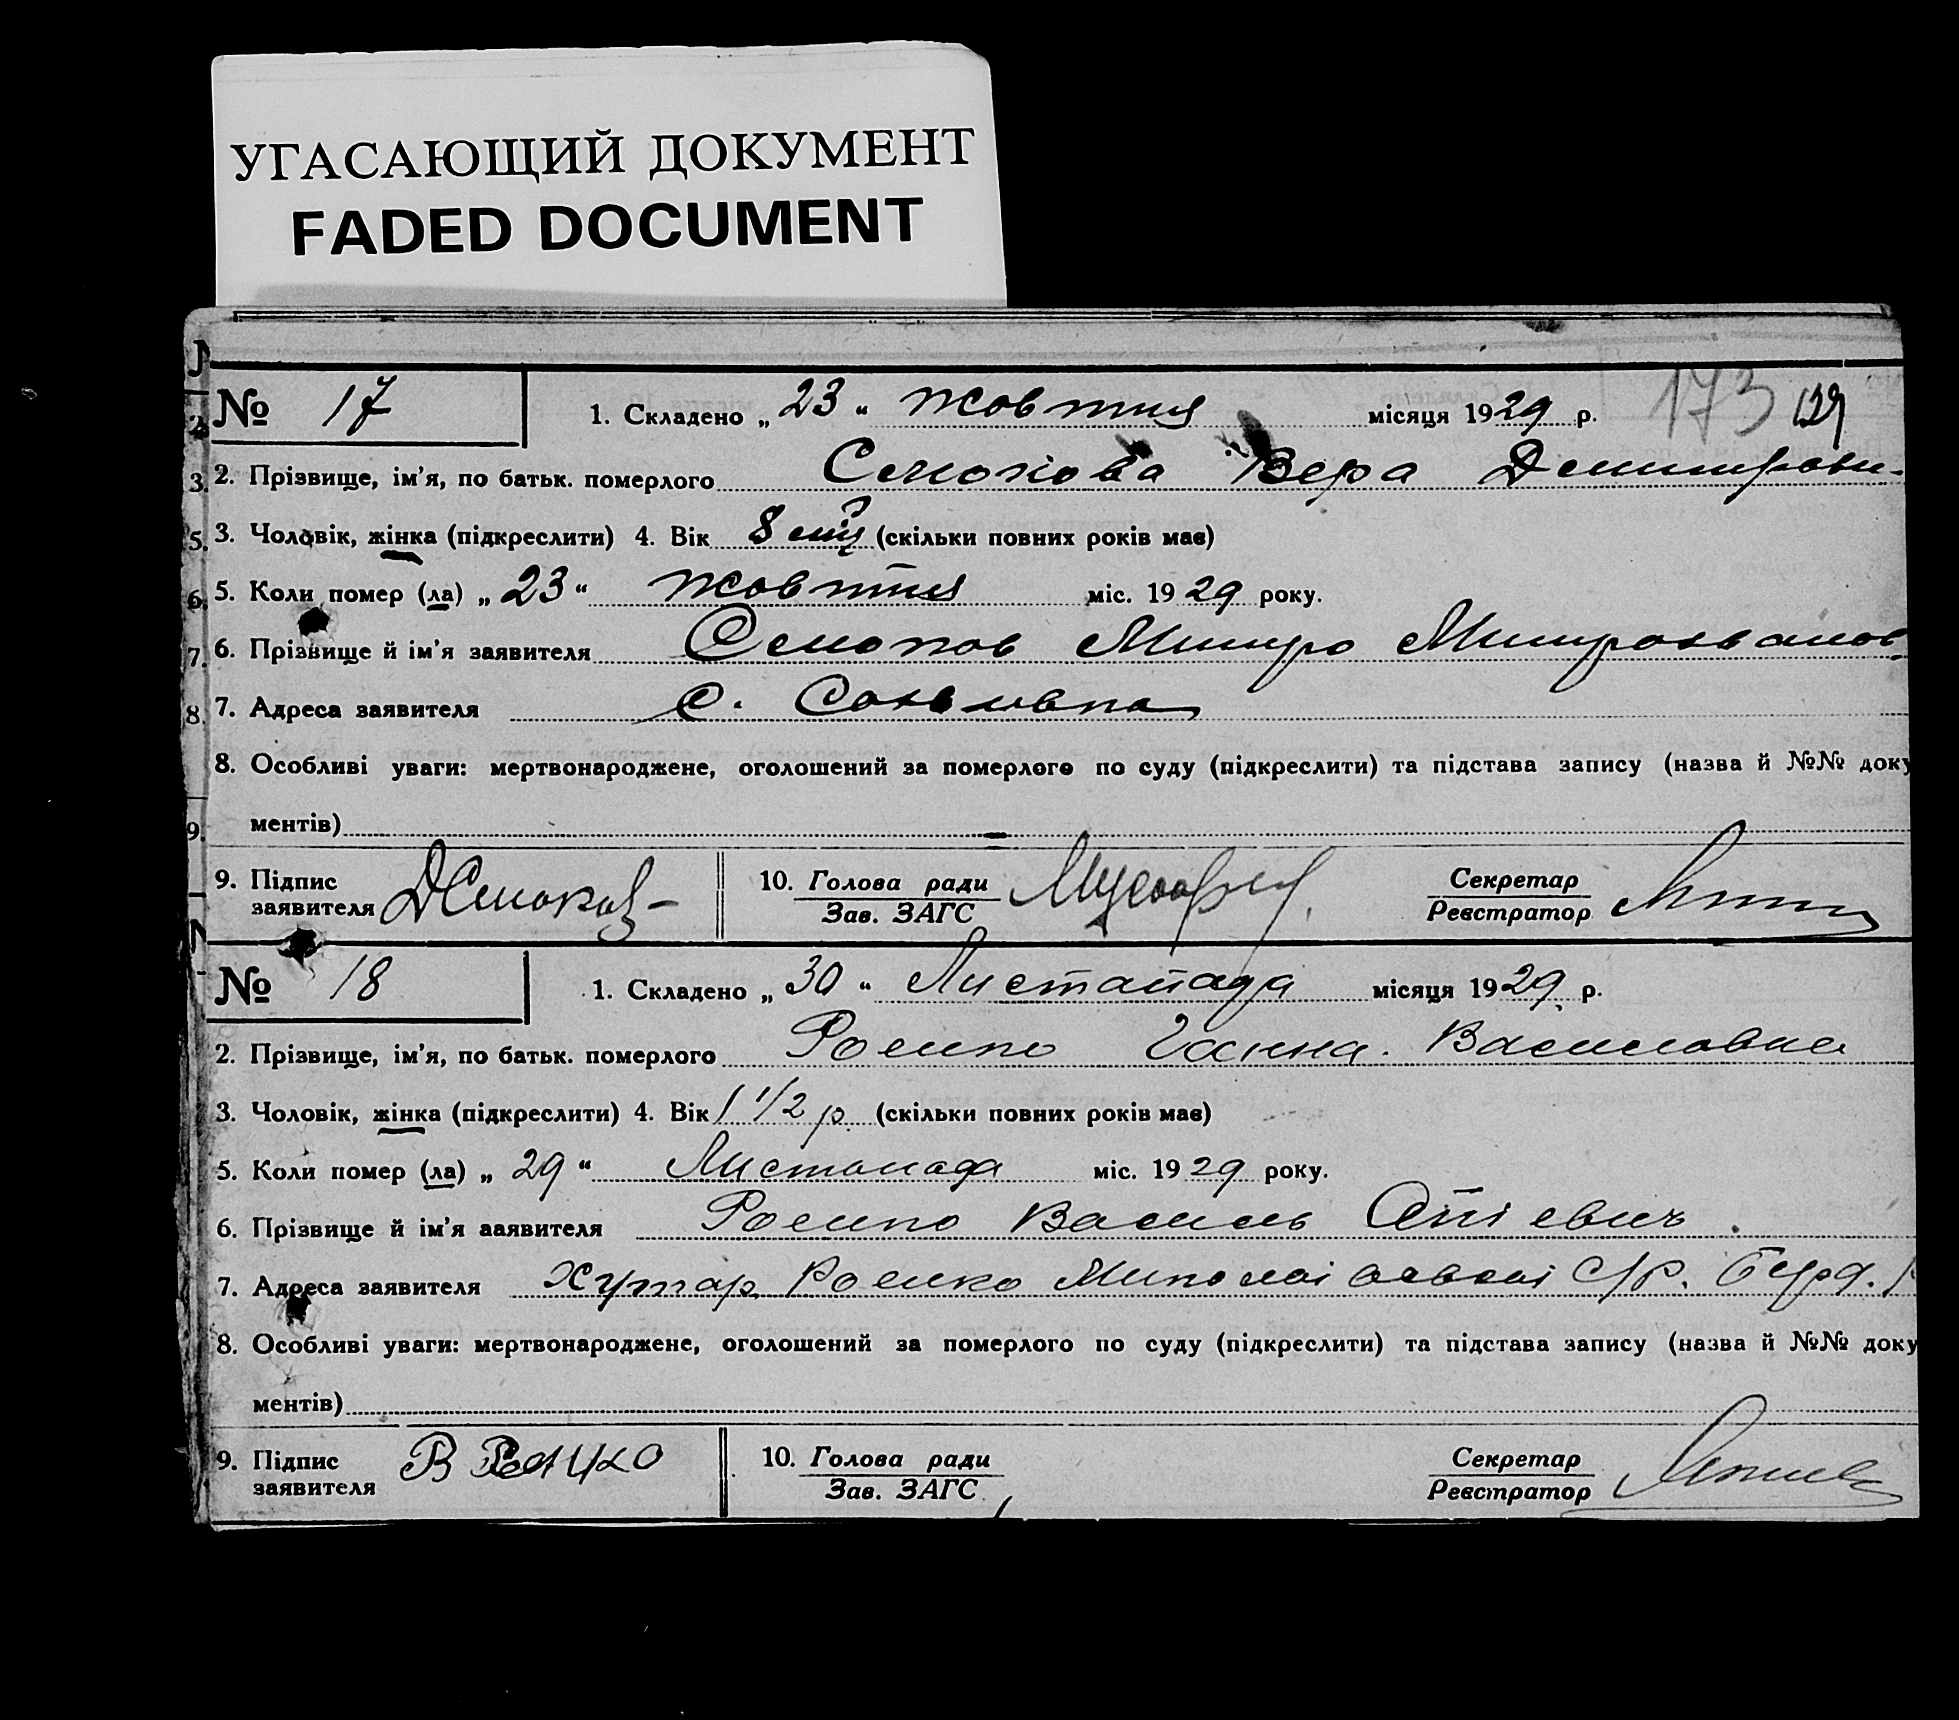 УГАСАЮЩИЙ ДОКУМЕНТ
FADED DOCUMENT
173 129
№ 17 1. Складено „ 23 “ жовтня місяця 1929 р.
2. Прізвище, ім'я, по батьк. померлого Вера
3. Чоловік, жінка (підкреслити) 4. Вік 8 (скільки повних років має)
5. Коли помер (ла) „ 23 “ жовтня міс. 1929 року.
6. Прізвище й ім'я заявителя
7. Адреса заявителя с.
8. Особливі уваги: мертвонароджене, оголошений за померлого по суду (підкреслити) та підстава запису (назва й №№ доку
ментів)
9. Підпис 10. Голова ради Секретар
заявителя Зав. ЗАГС Реєстратор
№ 18 1. Складено „ 30 “ Листапада місяця 1929 р.
2. Прізвище, ім'я, по батьк. померлого Роенко Ганна Василовна
3. Чоловік, жінка (підкреслити) 4. Вік 1 1/2 р. (скільки повних років має)
5. Коли помер (ла) „ 29 “ Листопада міс. 1929 року.
6. Прізвище й ім'я заявителя Роенко Василь
7. Адреса заявителя Хутор Роенко с/р. Берд.
8. Особливі уваги: мертвонароджене, оголошений за померлого по суду (підкреслити) та підстава запису (назва й №№ доку
ментів)
9. Підпис В 10. Голова ради Секретар
заявителя Зав. ЗАГС Реєстратор